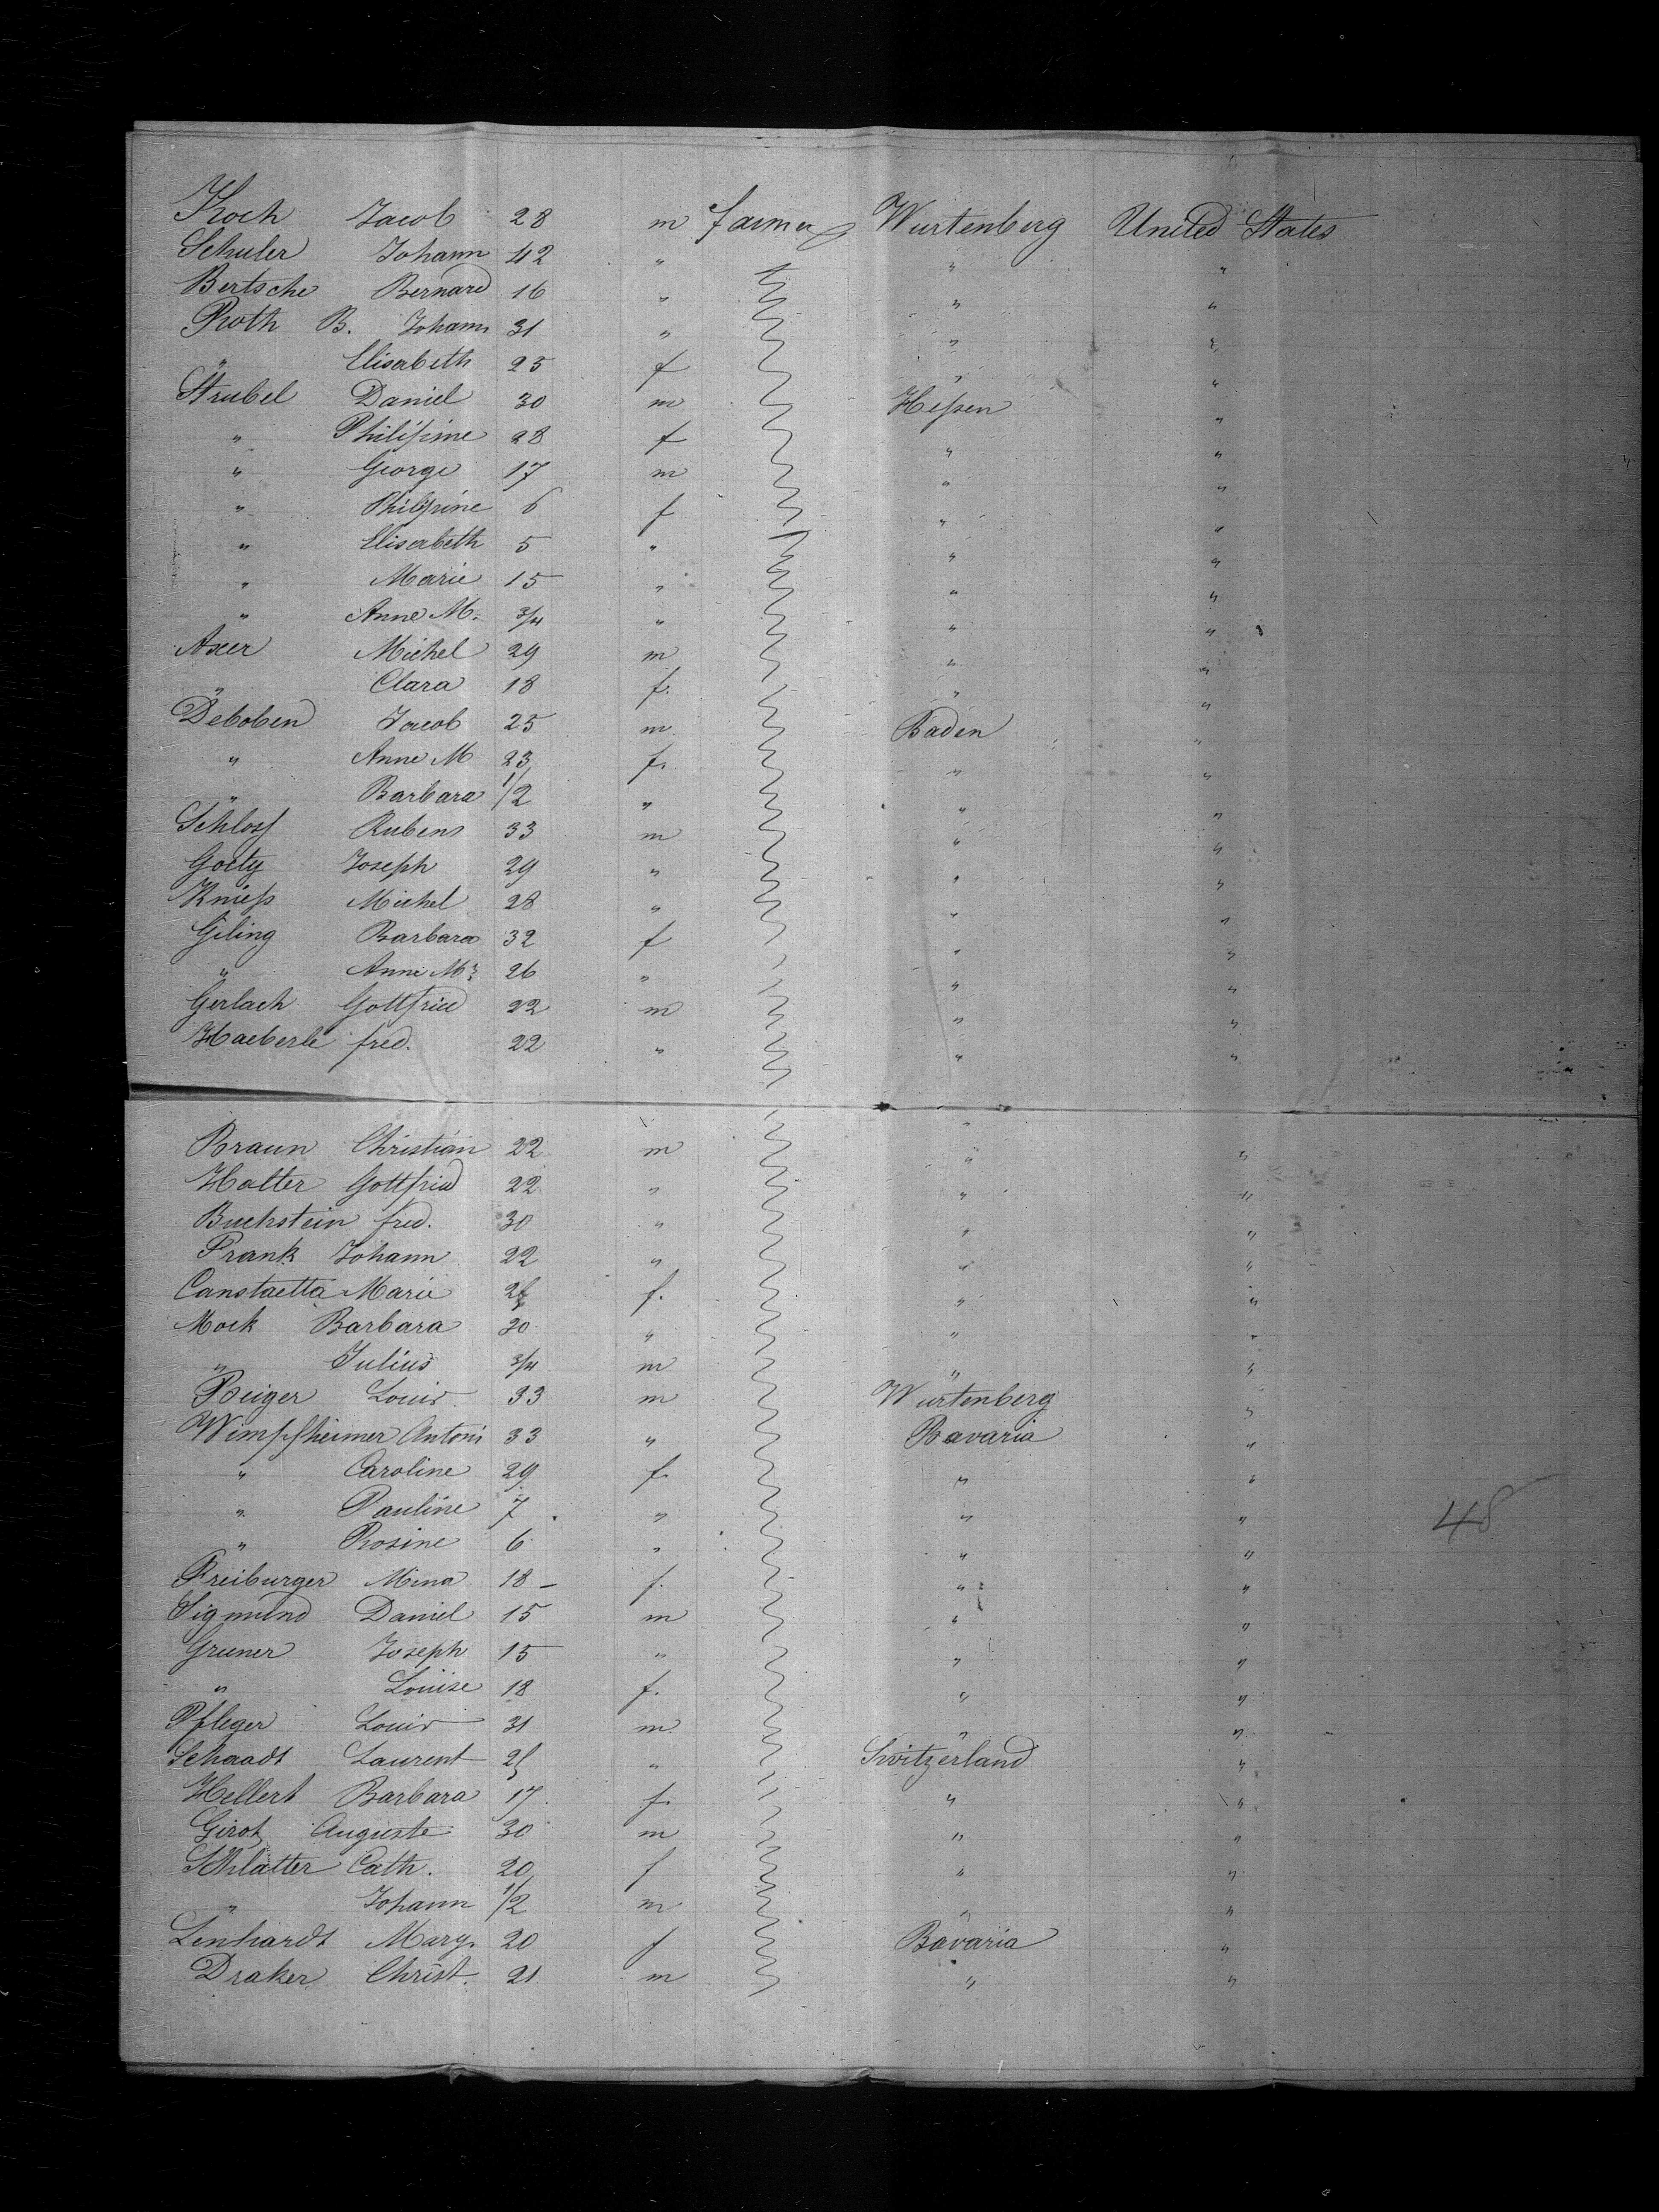 Koch Jacob 28 m farmer Wurtenberg United States
Schuler Johann 42 " " "
Bertsche Bernard 16 " " "
Roth B. Johann 31 " " "
" Elisabeth 25 f " "
Strubel Daniel 30 m Hessen "
" Philipine 28 f " "
" George 17 m " "
" Philipine 6 f " "
" Elisabeth 5 " " "
" Marie 15 " " "
" Anne M. 3/4 " " "
Axer Michel 29 m " "
" Clara 18 f. " "
Deboben Jacob 25 m. Baden "
" Anne M 23 f. " "
" Barbara 1/2 " " "
Schloss Rubens 33 m " "
Goetz Joseph 29 " " "
Kniess Michel 28 " " "
Giling Barbara 32 f " "
" Anne M. 26 " " "
Gerlach Gottfried 22 m " "
Haeberle fred. 22 " " "
Braun Christian 22 m " "
Halter Gottfried 22 " " "
Buchstein fred. 30 " " "
Frank Johann 22 " " "
Canstaetta Marie f. " "
Mock Barbara 30 " " "
" Julius 3/4 m " "
Reiger Louis 33 m Wurtenberg "
Wimpfheimer Antoni 33 " Bavaria "
" Caroline 29 f. " "
" Pauline 7 " " "
" Rosine 6 " " "
Freiburger Mina 18 - f. " "
Sigmund Daniel 15 m " "
Gruner Joseph 15 " " "
" Louise 18 f. " "
Pfleger Louis 31 m. " "
Schaadt Laurent 25 " Switzerland "
Hellert Barbara 17 f. " "
Girot Auguste 30 m " "
Schlatter Cath. 20 f " "
" Johann 1/2 m " "
Lenhardt Marg. 20 f Bavaria "
Draker Christ. 21 m " "
48